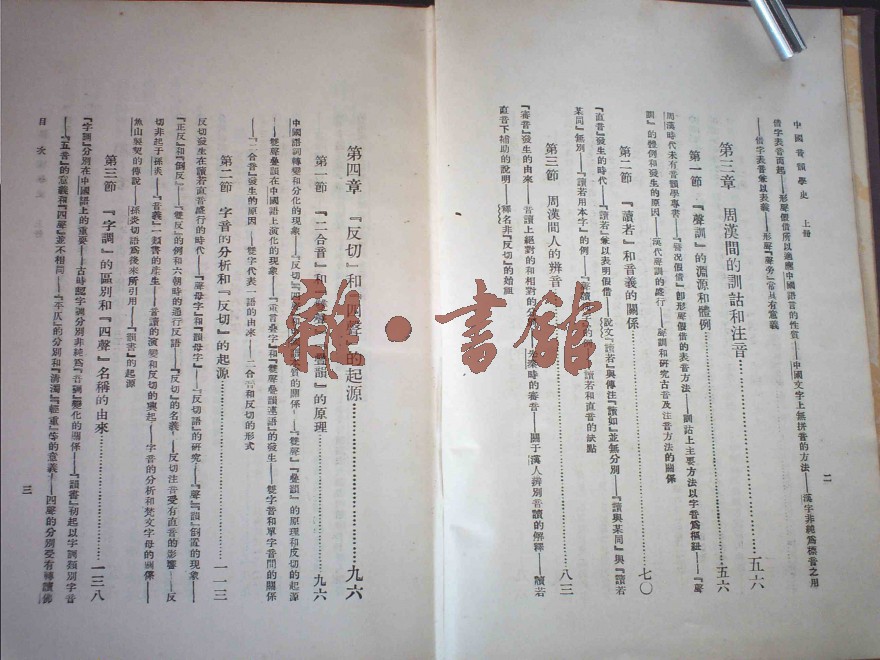 中國音韻學史 上冊
二
借字表音而起——形聲假借所以適應中國語言的性質——中國文字上無拼音的方法——漢字非純爲標音之用
——借字表音兼以表義——形聲『聲旁』常兼有意義
第三章 周漢間的訓詁和注音……五六
第一節 『聲訓』的淵源和體例……五六
周漢時代未有音韻學專書——『聲況假借』卽形聲假借的表音方法——訓詁上主要方法以字音爲樞紐——『聲
訓』的體例和發生的原因——漢代聲訓的盛行——聲訓和研究古音及注音方法的關係
第二節 『讀若』和音義的關係……七〇
『直音』發生的時代——『讀若』兼以表明假借——說文『讀若』與傳注『讀如』並無分別——『讀與某同』與『讀若
某同』無別——『讀若用本字』的例——讀若和直音的缺點
第三節 周漢間人的辨音……八三
『審音』發生的由來——音讀上絕對的和相對的分——先秦時的審音——關于漢人辨別音讀的解釋——讀若
直音下補助的說明——釋名非『反切』的始祖
第四章 『反切』和『四聲』的起源……九六
第一節 『二合音』和『雙聲』『疊韻』的原理……九六
中國語詞轉變和分化的現象——『反切』『四聲』的關係——『雙聲』『疊韻』的原理和反切的起源
——雙聲疊韻在中國語上演化的現象——『重言疊字』和『雙聲疊韻連語』的發生——雙字音和單字音間的關係
——『二合音』發生的原因——雙字代表一語的由來——二合音和反切的形式
第二節 字音的分析和『反切』的起源……一一三
反切發生在讀若直音盛行的時代——『聲母字』和『韻母字』——『反切語』的研究——『聲』『韻』倒置的現象——
『正反』和『倒反』——『雙反』的例和六朝時的通行反語——『反切』的名義——反切注音受有直音的影響——反
切非起于孫炎——『音義』一類書的產生——音讀的演變和反切的興起——字音的分析和梵文字母的關係——
魚山製契的傳說——孫炎切語爲後來所引用——『韻書』的起源
第三節 『字調』的區別和『四聲』名稱的由來……一三八
『字調』分別在中國語上的重要——古時聲字調分別非純爲『音調』變化的關係——『韻書』初起以字調類別字音
——『五音』的意義和『四聲』並不相同——『平仄』的分別和『清濁』『輕重』等的意義——四聲的分別受有轉讀佛
目次
三
雒·書館